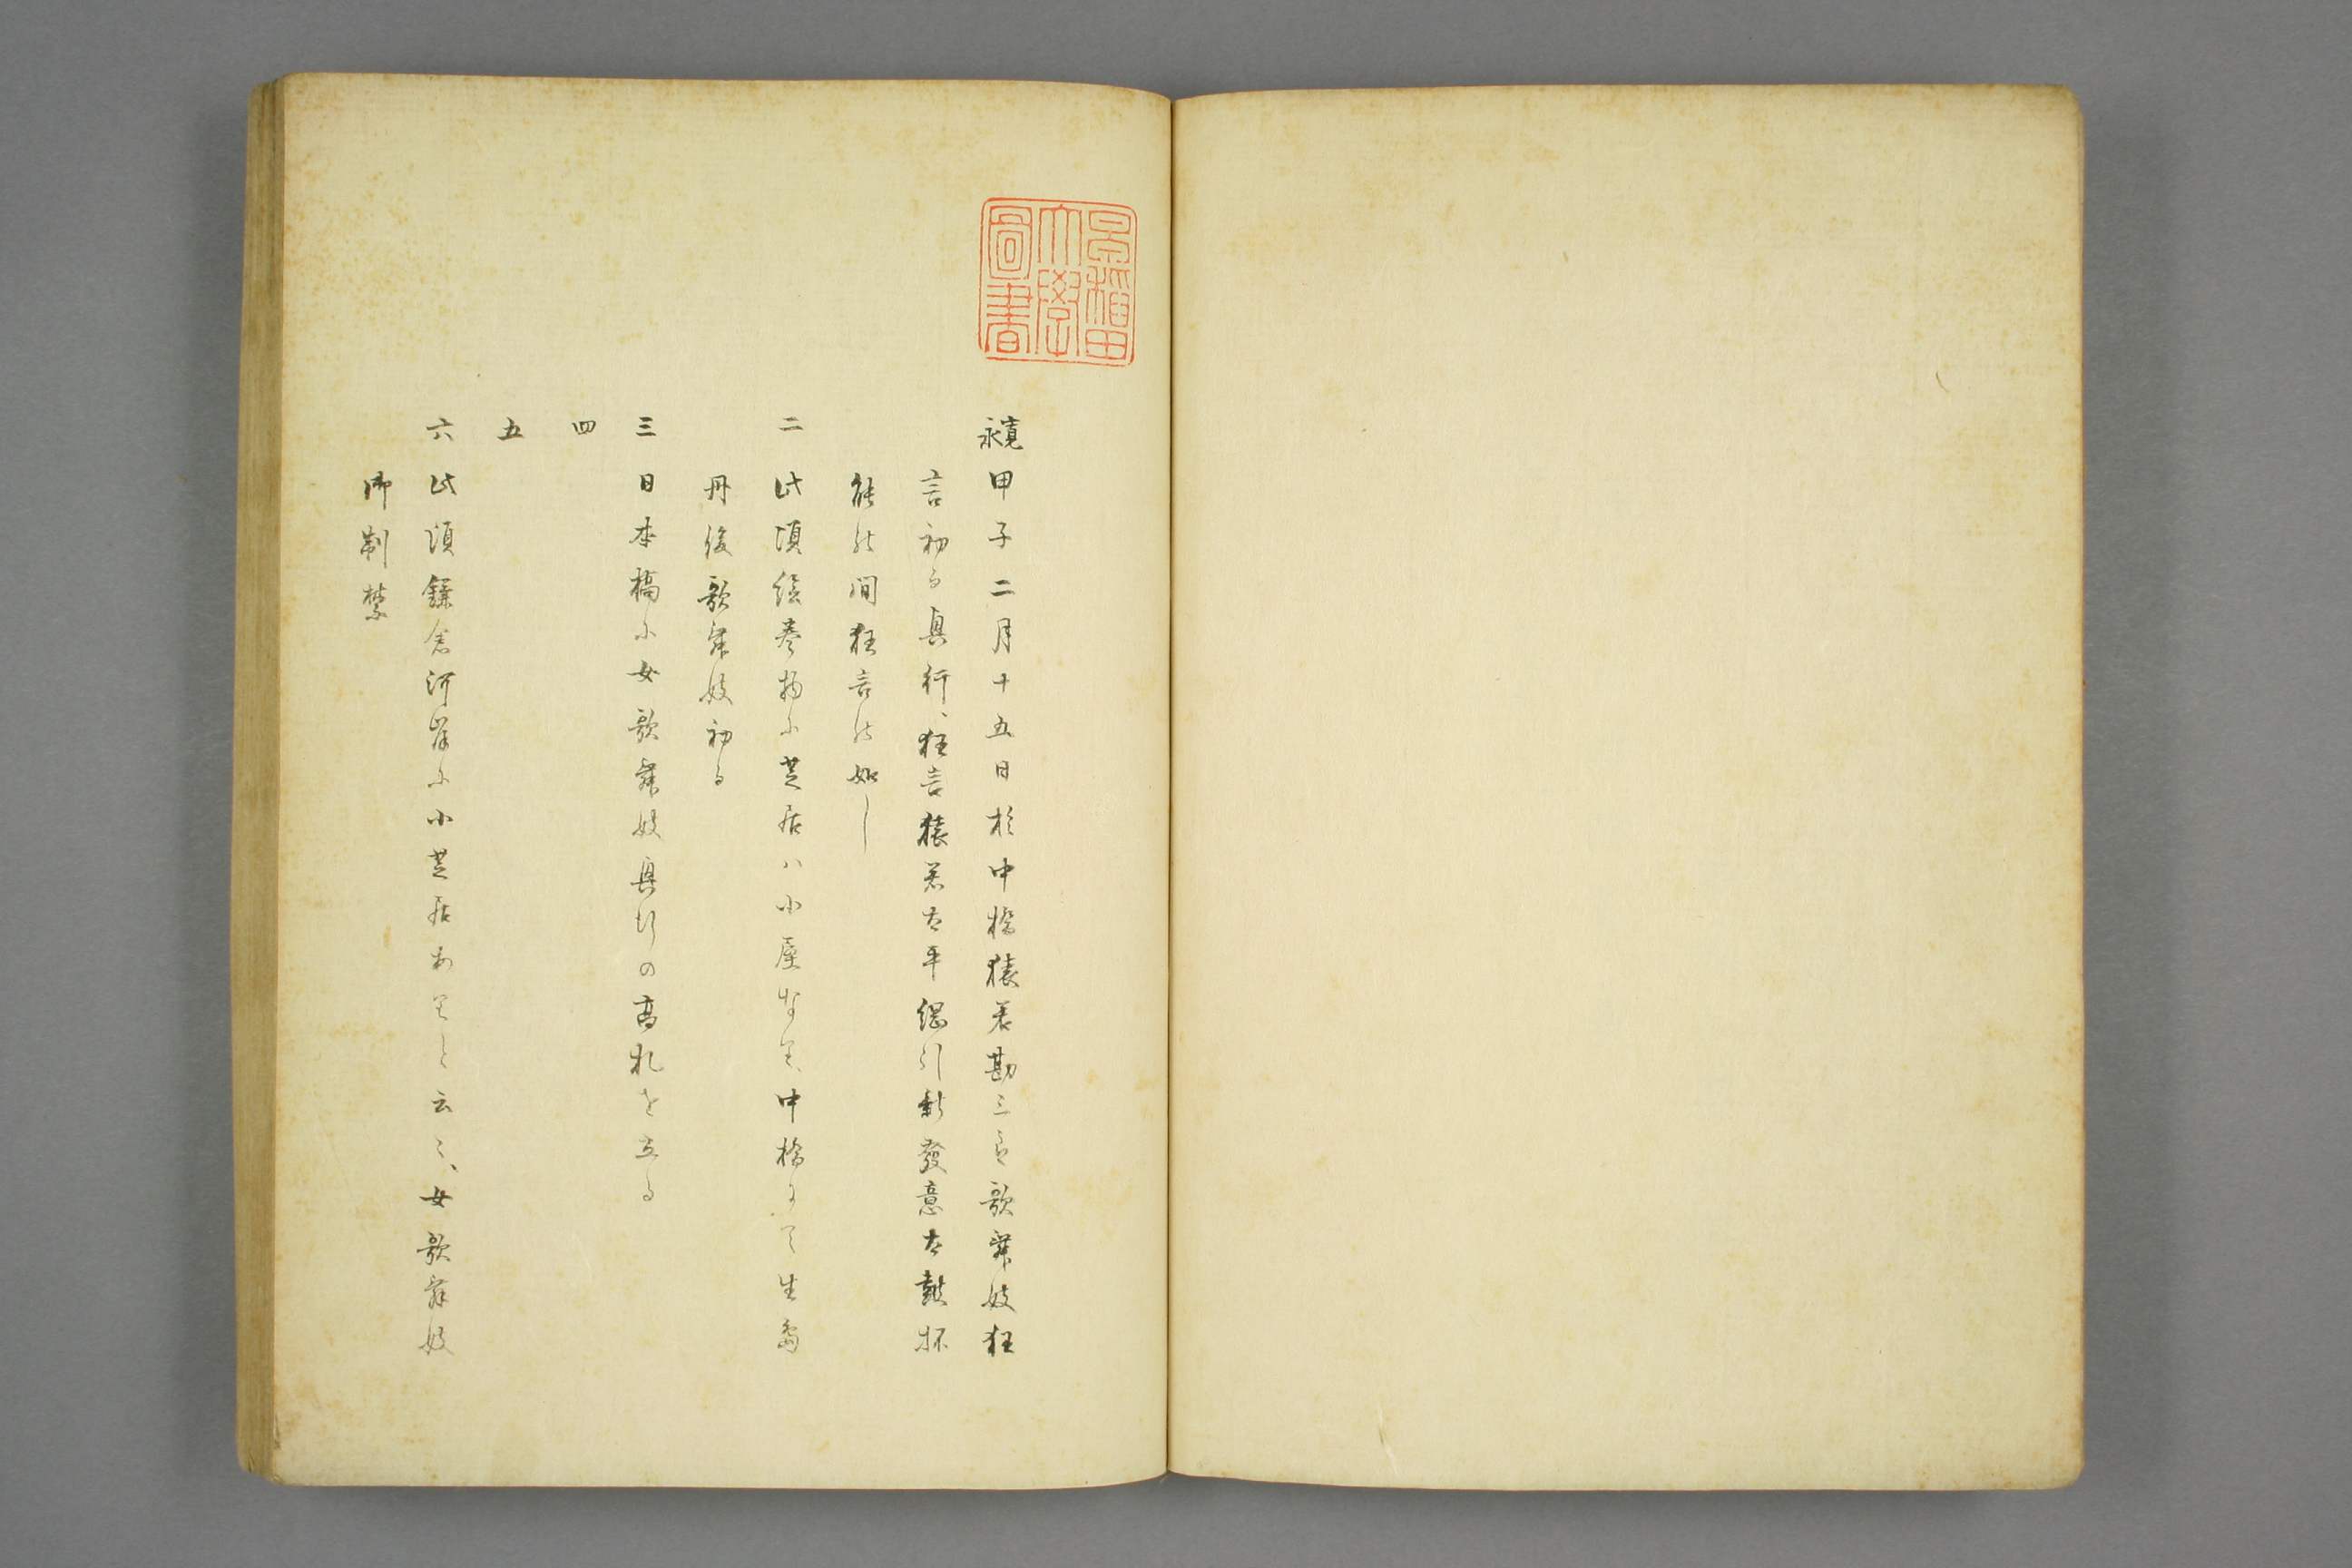 早稲田
大學
圖書
寛永 甲子二月十五日於中橋猿若勘三郎歌舞妓狂
言初る興行、狂言猿若太平綱引新發意太鼓杯
能の間狂言の如し
二 此頃絵巻物に芝居ハ小屋なり、中橋にて生島
丹後歌舞妓初る
三 日本橋に女歌舞妓興行の高札を立る
四
五
六 此頃鎌倉河岸に小芝居ありと云々、女歌舞妓
御制禁